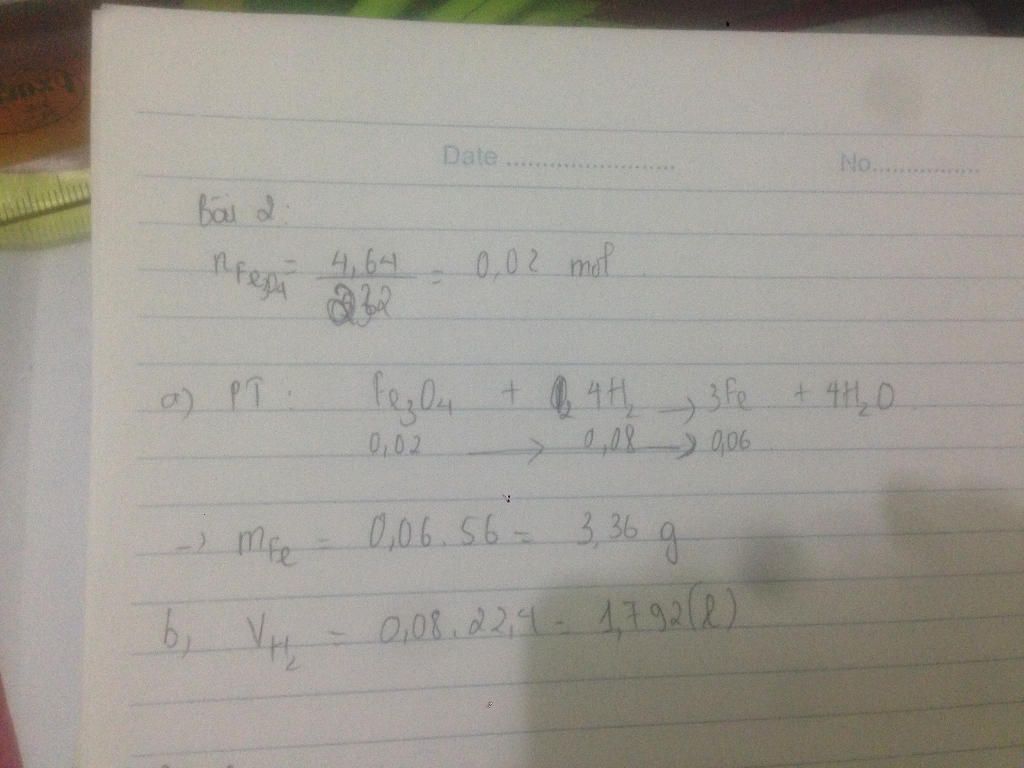 Date ........................ No................
Bài 2:
nFe₃O₄ = 4,64 / 232 = 0,02 mol
a) PT: Fe₃O₄ + 4H₂ → 3Fe + 4H₂O
0,02 → 0,08 → 0,06
→ mFe = 0,06.56 = 3,36 g
b, VH₂ = 0,08.22,4 = 1,792(l)